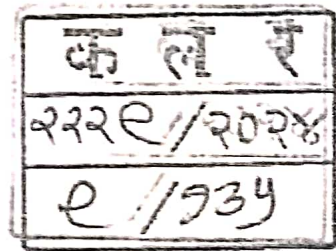 क ल र
२२२९/२०२४
९/१३५